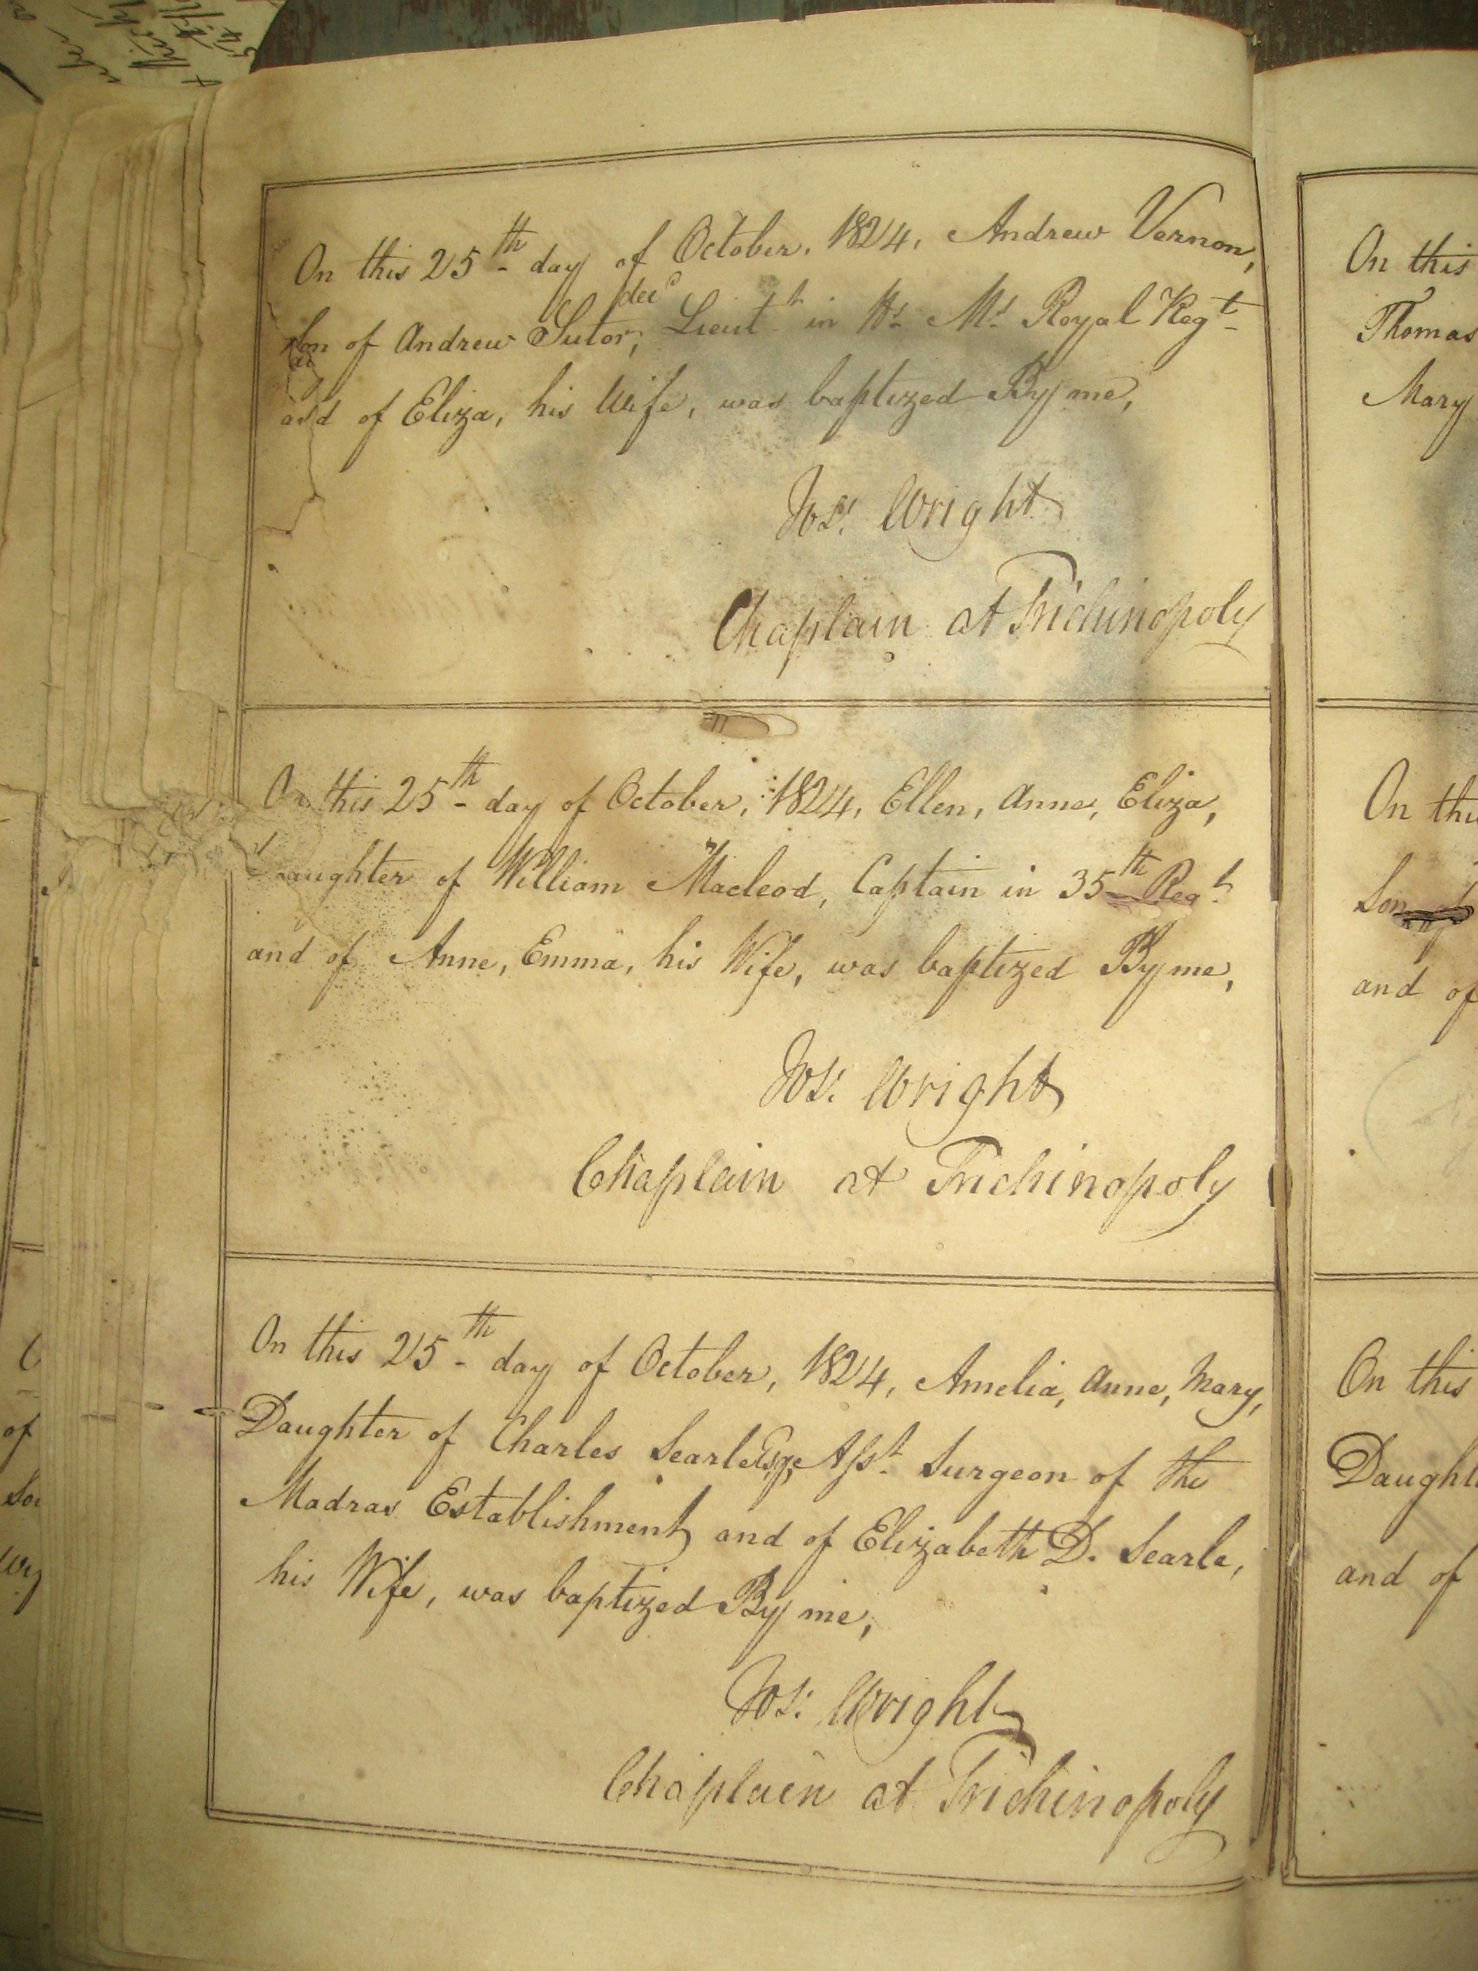 On this 25th day of October, 1824, Andrew Vernon,
decd
Son of Andrew Sutor, Lieutt in Hs Ms Royal Regt
and of Eliza, his Wife, was baptized By me,
Jos: Wright
Chaplain at Trichinopoly
On this 25th day of October, 1824, Ellen, Anne, Eliza,
Daughter of William Macleod, Captain in 35th Regt
and of Anne, Emma, his Wife, was baptized By me,
Jos: Wright
Chaplain at Trichinopoly
On this 25th day of October, 1824, Amelia, Anne, Mary,
Daughter of Charles Searle Esqe, Asst Surgeon of the
Madras Establishment and of Elizabeth D. Searle,
his Wife, was baptized By me,
Jos: Wright
Chaplain at Trichinopoly
On this
Thomas
Mary
On this
Son of
and of
On this
Daught
and of